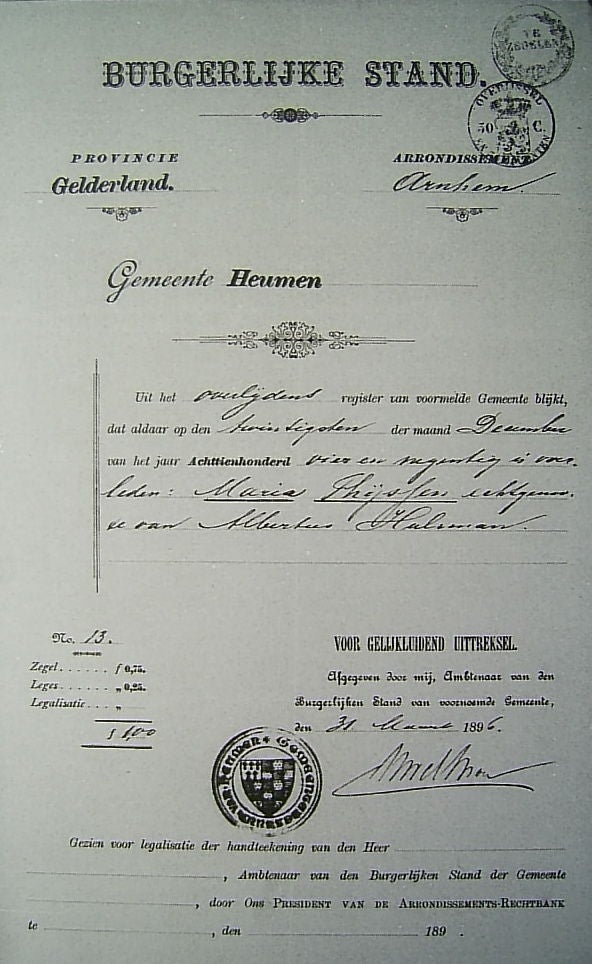 TE
ZEGELEN
BURGERLIJKE STAND.
OVERIJSSEL
50 C.
PROVINCIE
Gelderland.
ARRONDISSEMENT
Arnhem.
Gemeente Heumen
Uit het overlijdens register van voormelde Gemeente blijkt,
dat aldaar op den twintigsten der maand December
van het jaar Achttienhonderd vier en negentig is over-
leden: Maria Thijssen echtgenoo-
te van Albertus
No. 13.
Zegel . . . . . . f 0,75.
Leges . . . . . . „ 0,25.
Legalisatie . . . „
f 1,00
VOOR GELIJKLUIDEND UITTREKSEL.
Afgegeven door mij, Ambtenaar van den
Burgerlijken Stand van voornoemde Gemeente,
den 31 Maart 1896.
Gezien voor legalisatie der handteekening van den Heer
, Ambtenaar van den Burgerlijken Stand der Gemeente
, door Ons PRESIDENT VAN DE ARRONDISSEMENTS-RECHTBANK
te , den 189 .